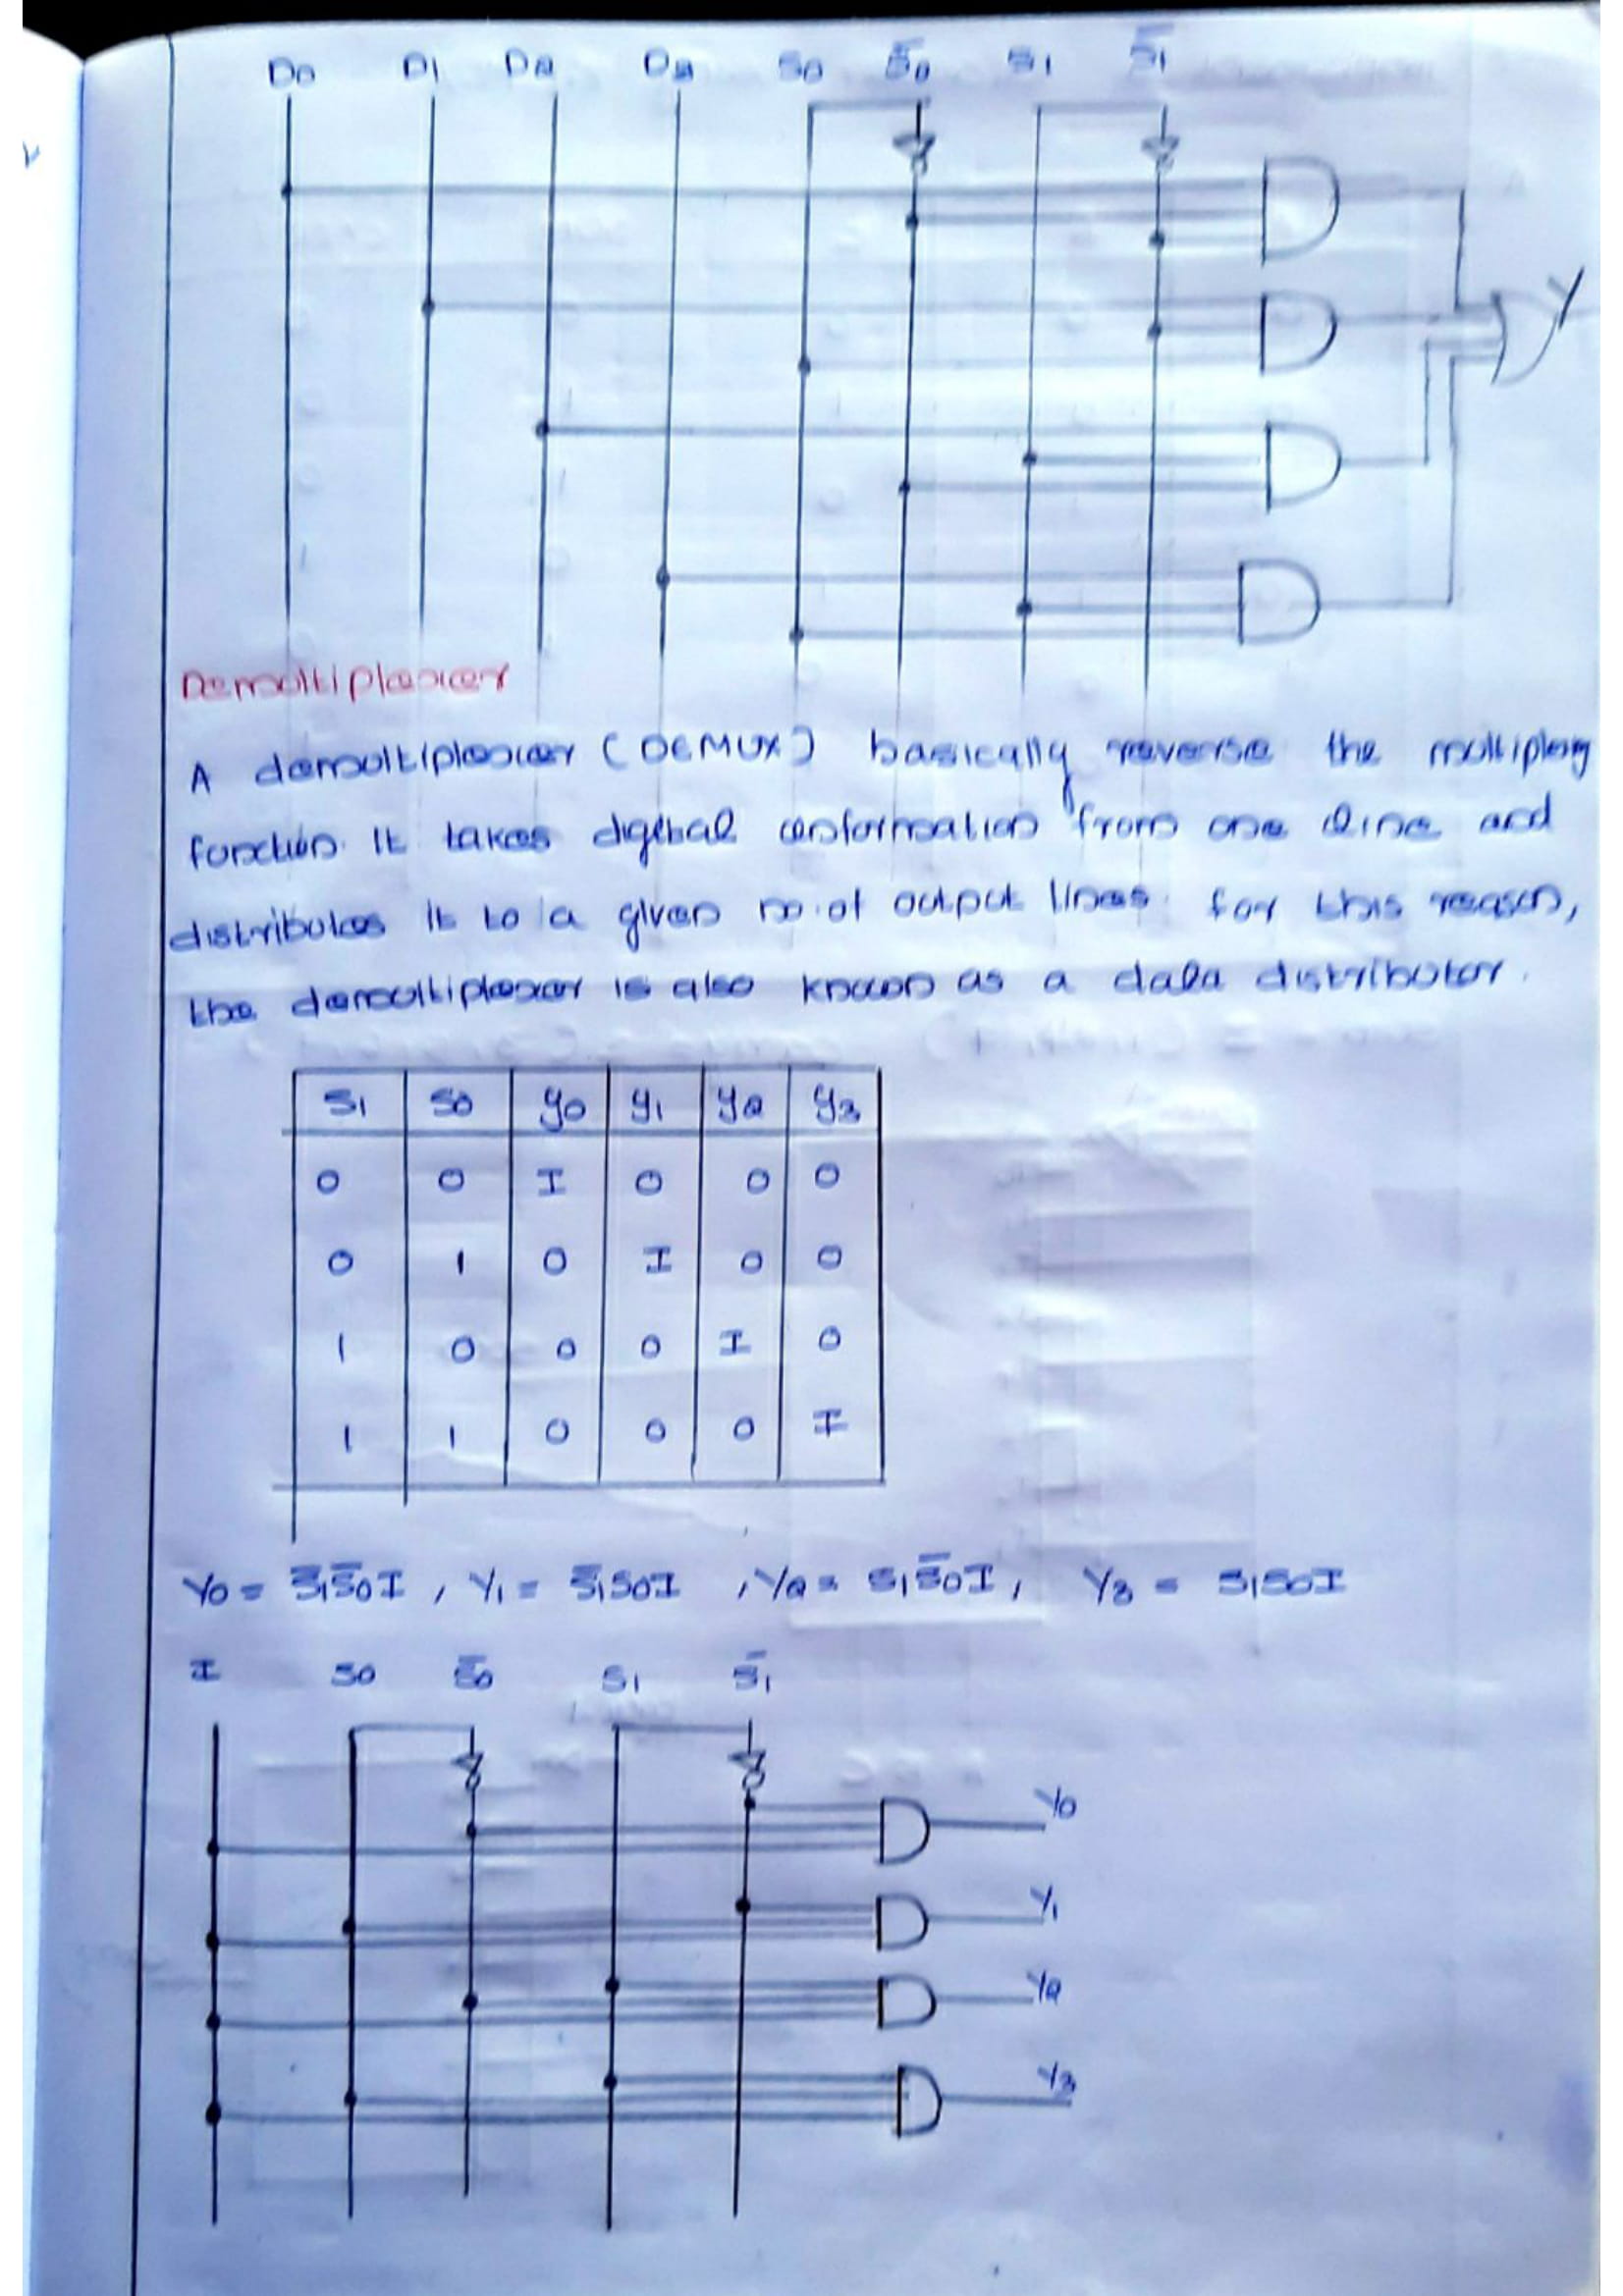 D0 D1 D2 D3 S0 S̄0 S1 S̄1
Y
Demultiplexer
A demultiplexer (DEMUX) basically reverse the multiplexing
function. It takes digital information from one line and
distributes it to a given no.of output lines. for this reason,
the demultiplexer is also known as a data distributor.
S1 S0 Y0 Y1 Y2 Y3
0 0 I 0 0 0
0 1 0 I 0 0
1 0 0 0 I 0
1 1 0 0 0 I
Y0 = S̄1S̄0I , Y1 = S̄1S0I , Y2 = S1S̄0I, Y3 = S1S0I
I S0 S̄0 S1 S̄1
Y0
Y1
Y2
Y3